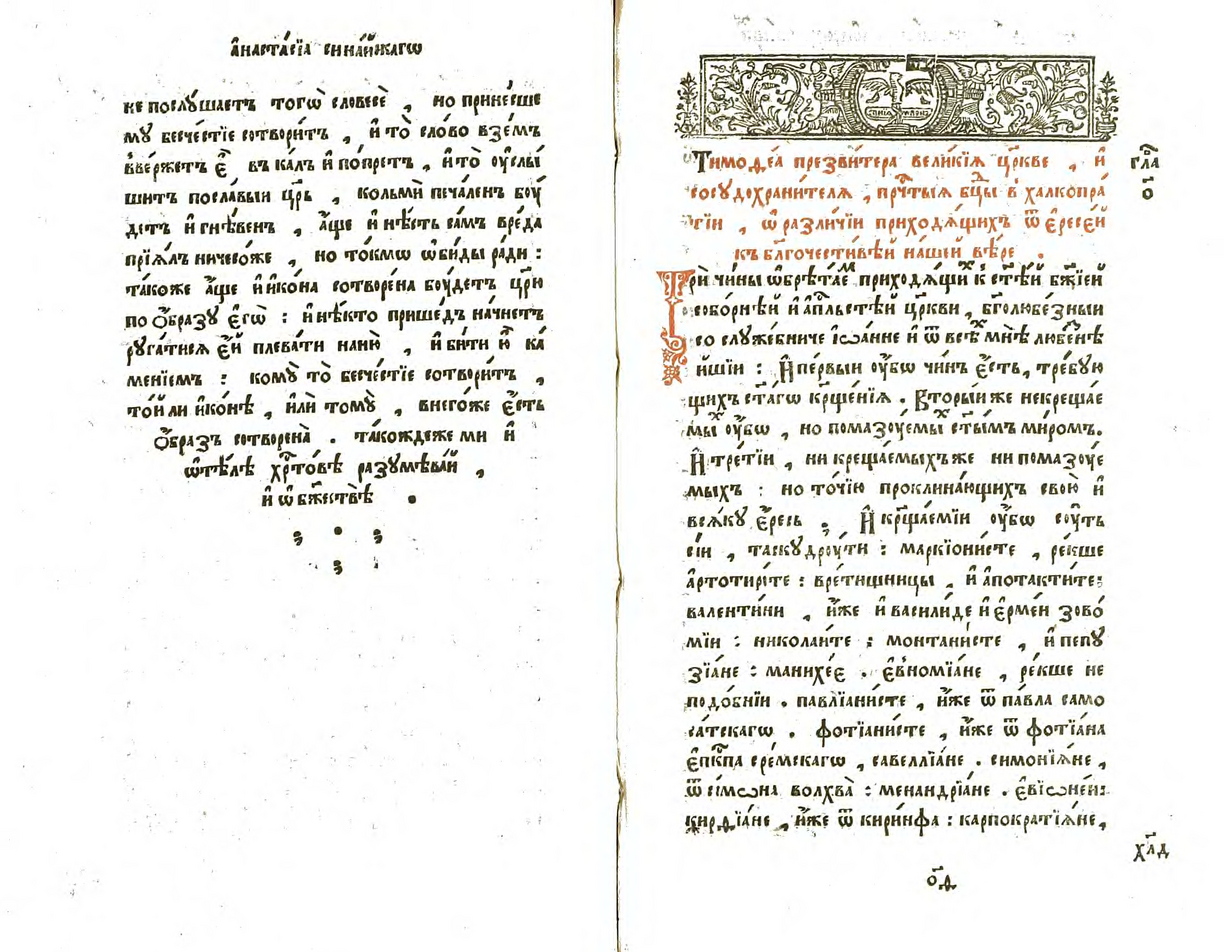 а҆наста́сїа синаи́скагѡ
не послꙋ́шаетъ тогѡ̀ словесѐ , но прине́сше
мꙋ̀ бесче́стїе сотвори́тъ , и҆ то̀ сло́во взе́мъ
вве́ржетъ є҆̀ въ ка́лъ и҆ по́претъ , и҆ то̀ ᲂу҆слы́
шитъ посла́выи цр҃ь , кольмѝ печа́ленъ бꙋ́
детъ и҆ гнѣ́венъ , а҆́ще и҆ нѣ́сть са́мъ вреда̀
прїѧ́лъ ничесо́же , но то́кмѡ ѡ҆би́ды ра́ди :
та́коже а҆́ще и҆ и҆ко́на сотворена̀ бꙋ́детъ цр҃ю̀
по ѻ҆́бразꙋ є҆гѡ̀ : и҆ нѣ́кто прише́дъ начне́тъ
рꙋга́тисѧ є҆́й плева́ти на ню̀ , и҆ би́ти ю҆̀ ка́
менїемъ : комꙋ̀ то̀ бесче́стїе сотвори́тъ ,
то́й ли и҆ко́нѣ , и҆лѝ томꙋ̀ , внего́же є҆́сть
ѻ҆́бразъ сотворена̀ . та́кождеже ми и҆
ѡ҆тѣ́лѣ хр҇то́вѣ разꙋмѣва́й ,
и҆ ѡ҆ бж҇ествѣ̀ .
Тимоѳе́а презви́тера вели́кїѧ цр҃кве , и҆
сосꙋдохрани́телѧ , пр҇чтыѧ бц҃ы в̾ халкопра́
тїи , ѡ҆ разли́чїи приходѧ́щихъ ѿ є҆ресе́й
къ бл҃гочести́вѣй на́шей вѣ́ре .
гла҃
о҃
Трѝ чи́ны ѡ҆брѣта́емъ приходѧ́щихъ к̾ ст҃ѣ́й бж҃їей
собо́рнѣй и҆ а҆пⷭ҇льстѣ́й цр҃кви , бг҃олюбе́зныи
со слꙋже́бниче і҆ѡа́нне и҆ ѿ всѣ́хъ мнѣ̀ любе́знѣ
йшїи : И҆ пе́рвыи ᲂу҆́бѡ чи́нъ є҆́сть , тре́бꙋю
щихъ ст҃а́гѡ кр҃ще́нїѧ . Вторы́и же некреща́е
мыхъ ᲂу҆́бѡ , но помазꙋ́емыхъ ст҃ы́мъ мѵ́ромъ .
И҆ тре́тїи , ни креща́емыхъ же ни помазꙋ́е
мыхъ : но то́чїю проклина́ющихъ свою̀ и҆
всѧ́кꙋ є҆́ресь ; И҆ кр҃ща́емїи ᲂу҆́бѡ сꙋ́ть
сїи , таскꙋдрꙋ́ти : маркїони́сте , ре́кше
а҆ртотири́те : вре́тищницы , и҆ а҆потакти́те :
валенти́ни , и҆́же и҆ васили́де и҆ є҆рме́и зово́
мїи : николаи́те ; монтани́сте , и҆ пепꙋ
зїа́не : манихе́є . є҆ѵномїа́не , ре́кше не
подо́бнїи . павлїани́сте , и҆́же ѿ па́вла само
са́тскагѡ . фотїани́сте , и҆́же ѿ фотїа́на
є҆пи́скпа сре́мскагѡ , савеллїа́не . симонїѧ́не ,
ѿ си́мѡна волхва̀ : менандрїа́не . є҆вїѡне́и :
кирдїа́не , и҆́же ѿ кири́нфа : карпократїѧ́не ,
хл҃д
о҃д